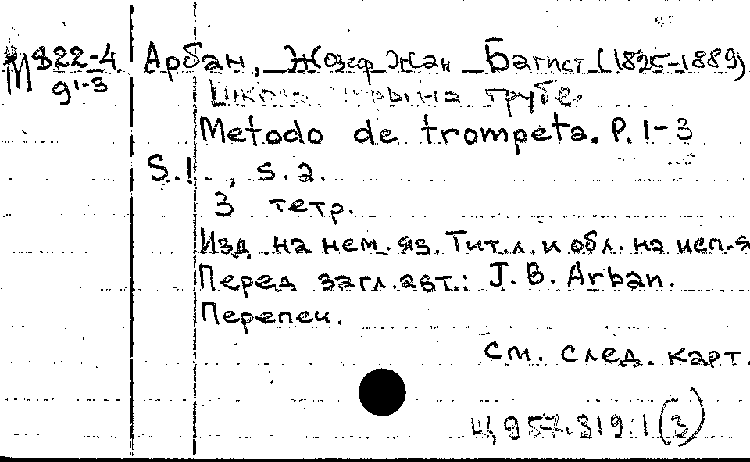 М 822-4
9¹⁻³
Арбан, Жозеф Жан Батист (1825-1889)
Школа игры на трубе.
Metodo de trompeta. P. 1-3
S.l., s.a.
3 тетр.
Изд. на нем. яз. Тит. л. и обл. на исп. я
Перед загл. авт.: J. B. Arban.
Переплеч.
См. след. карт.
Ц 957.319:1 (3)